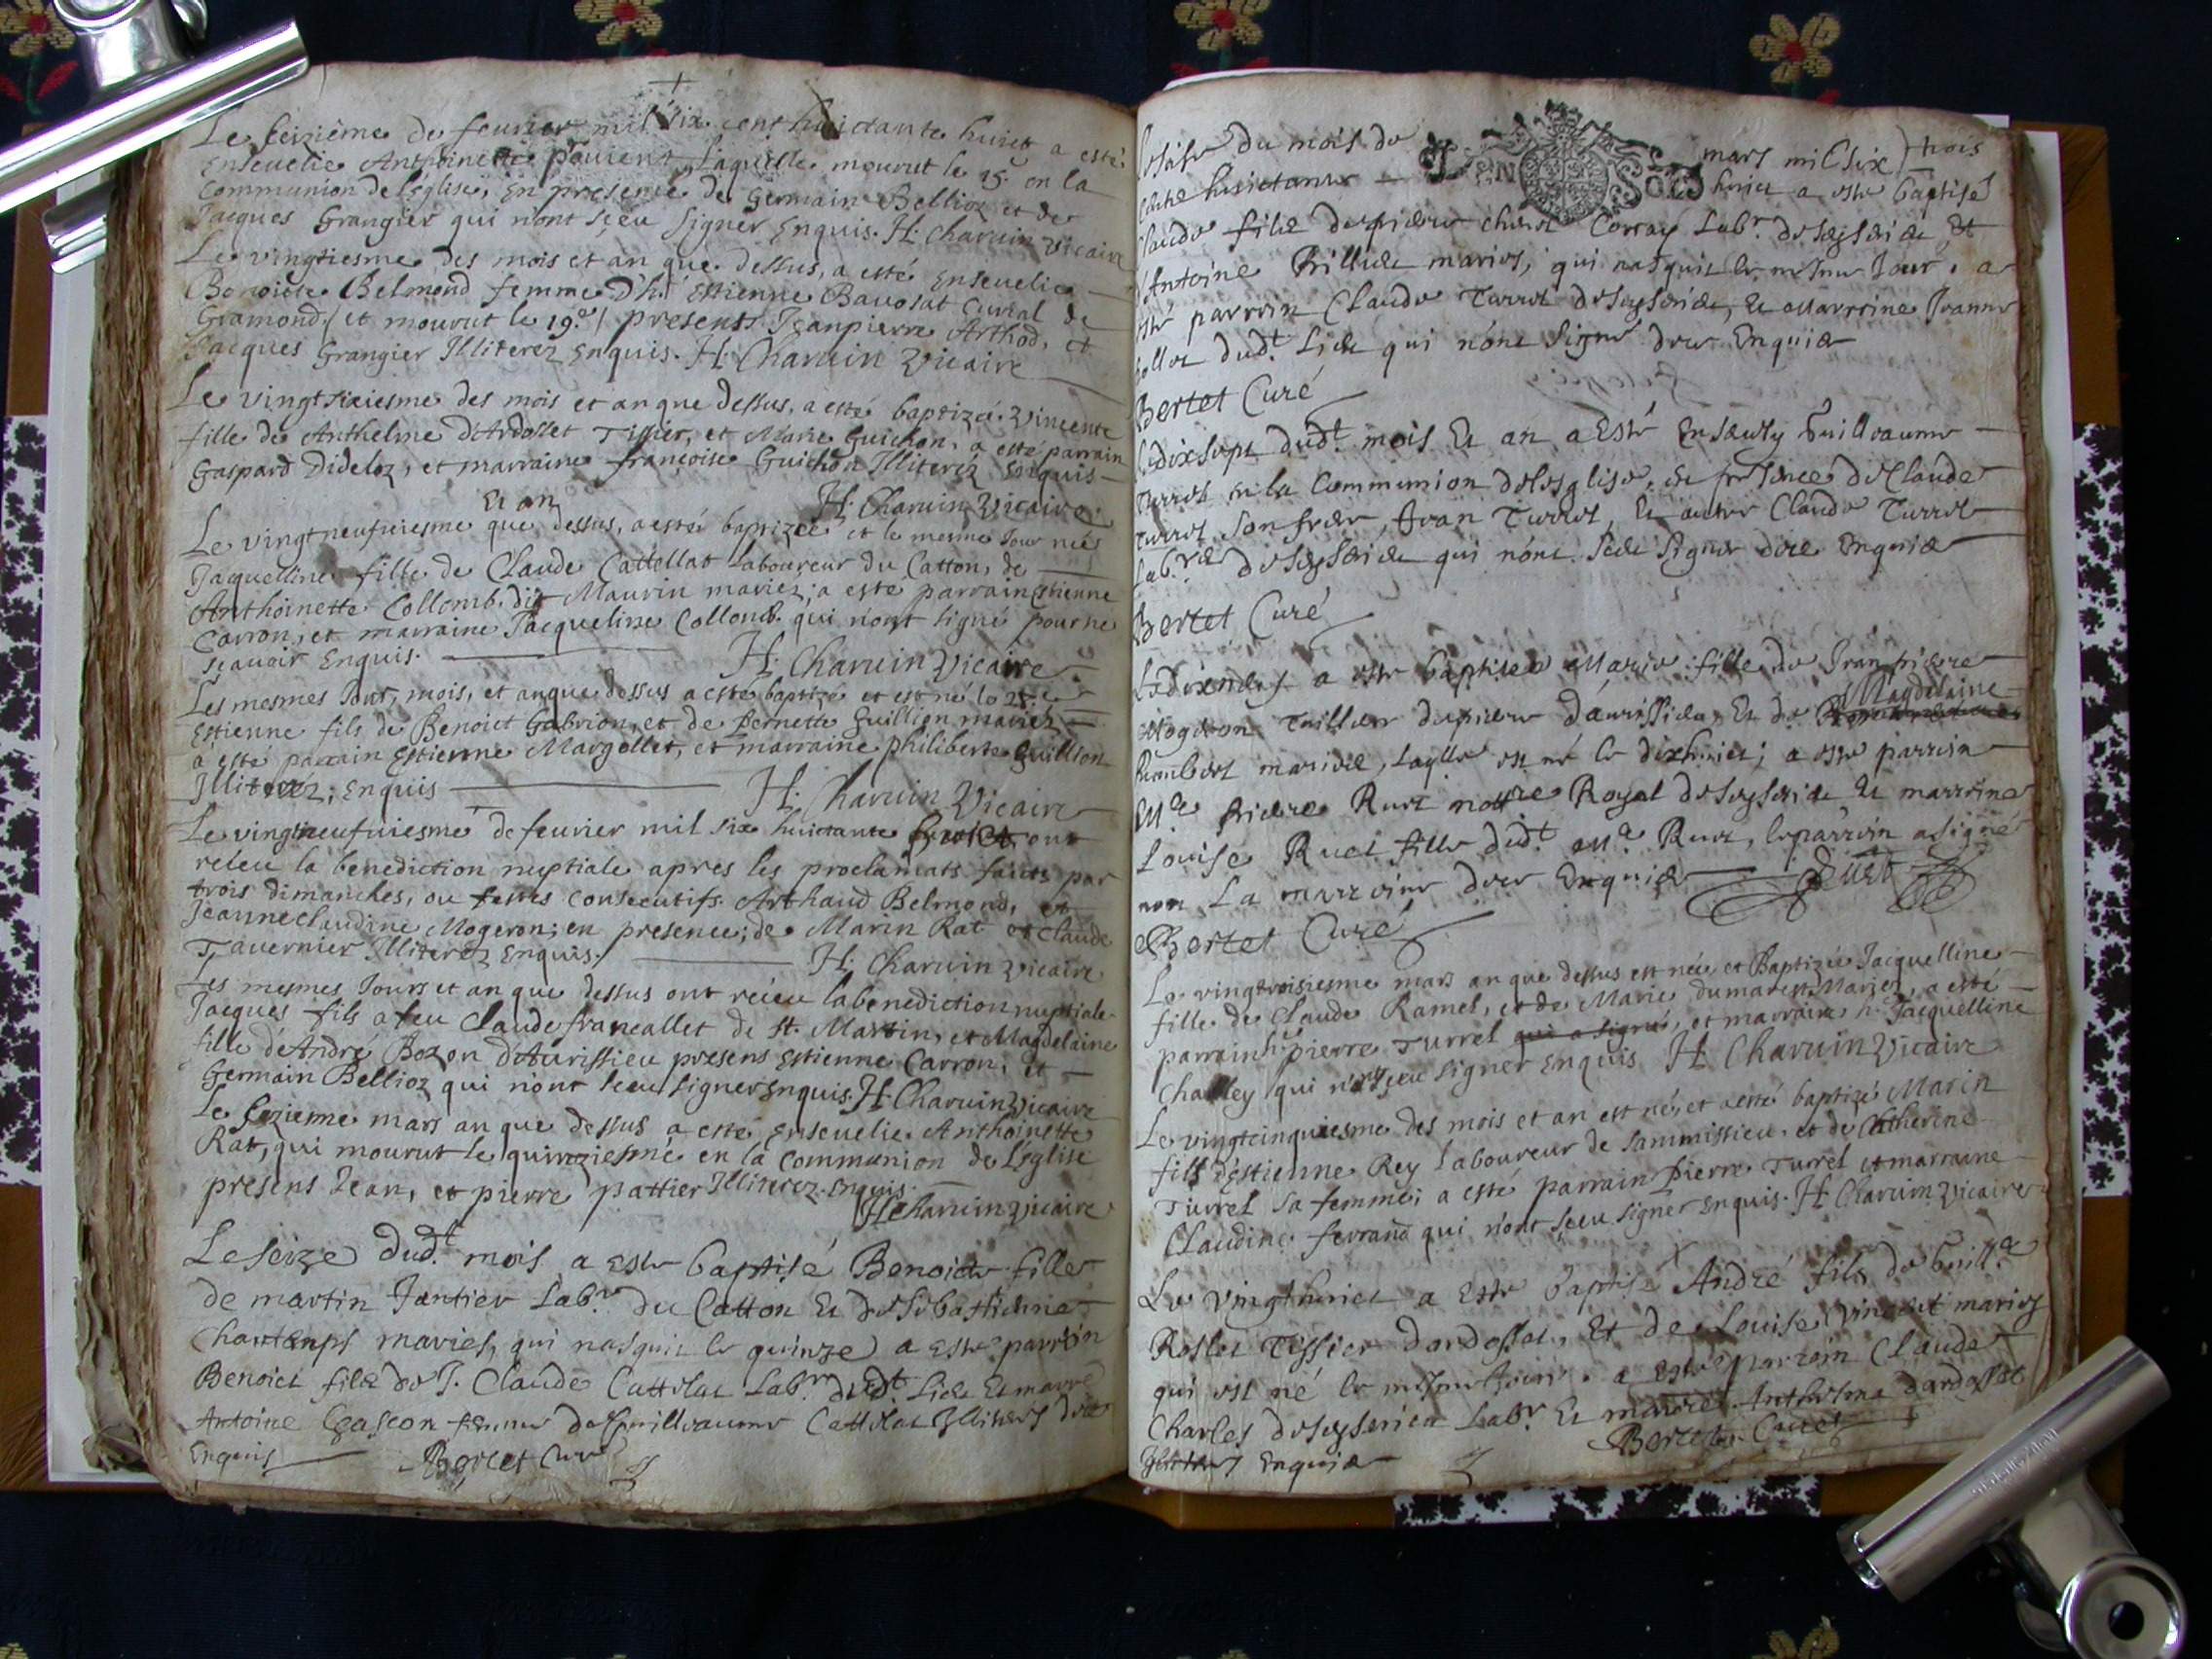 Le seizième de feurier mil six cent huictante huict a esté
Enseuelie Anthoinette laquelle mourut le 15.e en la
Communion de l'église, En presence de Germain Bellioz et de
Jacques Grangier qui n'ont sçeu signer Enquis. H. Charuin Vicaire
Le vingtiesme des mois et an que dessus, a esté Enseuelie
Benoiste Belmond femme d'h. Estienne Bauosat Curial de
Gramond, / et mourut le 19.e / presents Jeanpierre Arthod, et
Jacques Grangier Illiterez Enquis. H. Charuin Vicaire
Le vingtsixiesme des mois et an que dessus, a esté baptizé Vincente
fille de Anthelme d'Ardosset Tissier, et Marie Guichon, a esté parrain
Gaspard Dideloz, et marraine françoise Guichon Illiterez Enquis
H. Charuin Vicaire
Et an
Le vingtneufuiesme que dessus, a esté baptizée et le mesme Jour née
Jaquelline fille de Claude Cattellat Laboureur du Catton, de
Anthoinette Collomb dit Maurin mariez; a esté parrain Estienne
Carron, et marraine Jacqueline Collomb qui n'ont signé pour ne
sçauoir Enquis. H. Charuin Vicaire
Les mesmes Jour, mois, et an que dessus a esté baptizé et est né le
Estienne fils de Benoict Gabrion, et de Pernette Guillion mariez
a esté parrain Estienne Margollet, et marraine philiberte Guillion
Illiterez; Enquis H. Charuin Vicaire
Le vingtneufuiesme de feurier mil six huictante huict ont
receu la benediction nuptiale apres les proclamats faicts par
trois dimanches, ou festes consecutifs Arthaud Belmond, et
Jeanneclaudine Mogeron; en presence; de Marin Rat et Claude
Tauernier Illiterez Enquis. H. Charuin Vicaire
Les mesmes Jours et an que dessus ont receu la benediction nuptiale
Jacques fils a feu Claude francallet de St. Martin, et Magdelaine
fille d'André Bozon d'Aurissieu presens Estienne Carron, et
Germain Bellioz qui n'ont sceu signer Enquis. H. Charuin Vicaire
Le sezieme mars an que dessus a esté Enseuelie Anthoinette
Rat, qui mourut le quinziesme en la Communion de l'église
presens Jean, et pierre pattier Illiterez Enquis.
H Charuin Vicaire
Le seize dud.t mois a Esté baptisé Benoicte fille
de martin Jantier Lab.r du Catton Et de Sebastienne
Chantemps mariés, qui nasquit le quinze a Esté parrein
Benoict filz de J. Claude Cattelat Lab.r dudt. Lieu Et marre
Antoine Gascon femme de Guillaume Cattelat Illiterés
Enquis Bertet Curé
du mois de mars mil six trois
huictante huict a esté baptisé
Claude filz de pierre Corray Lab.r de Et
Antoine Billiet mariés, qui nasquit le mesme Jour. a
esté parrein Claude Turrel de Et marreine Jeanne
dudt. Lieu qui n'ont signé Enquis
Bertet Curé
Le dixsept dudt. mois Et an a Esté Ensevely Guillaume
Turrel en la Communion de l'esglise, en presence de Claude
Turrel son frere, Jean Turrel, Et autre Claude Turrel
Lab.rs de qui n'ont signer Enquis
Bertet Curé
a esté baptisée Marie fille de Jean pierre
Mogeron Tailleur d'aurissieu, Et de Magdelaine
Humbert mariés, Laqlle est né le dixhuict; a esté parrein
M.e pierre Ruet nottre Royal de Et marreine
Louise Ruet fille dudt. M.e Ruet, le parrein a signé
non La marreine Enquis Ruet
Bertet Curé
Le vingtroisiesme mars an que dessus est née et Baptizée Jacquelline
fille de Claude Ramel, et de Marie dumarest Mariez, a esté
parrain h. pierre Turrel qui a signé, et marraine h. Jacquelline
Challey qui n'ont sçeu signer Enquis H. Charuin Vicaire
Le vingtcinquiesme des mois et an est né, et a esté baptizé Marin
fils d'Estienne Rey laboureur de Sammissieu, et de Catherine
Turrel sa femme; a esté parrain Pierre Turrel et marraine
Claudine ferrand qui n'ont sçeu signer Enquis. H. Charuin Vicaire
Le Vingthuict a Esté baptisé André fils de Guill.e
Roslet Tissier dardosset, Et de Louise Vincent mariés
qui est né le mesme Jour. a Esté parrein Claude
Charles de Lab.r Et marre Anthelma dardosset
Enquis Bertet Curé